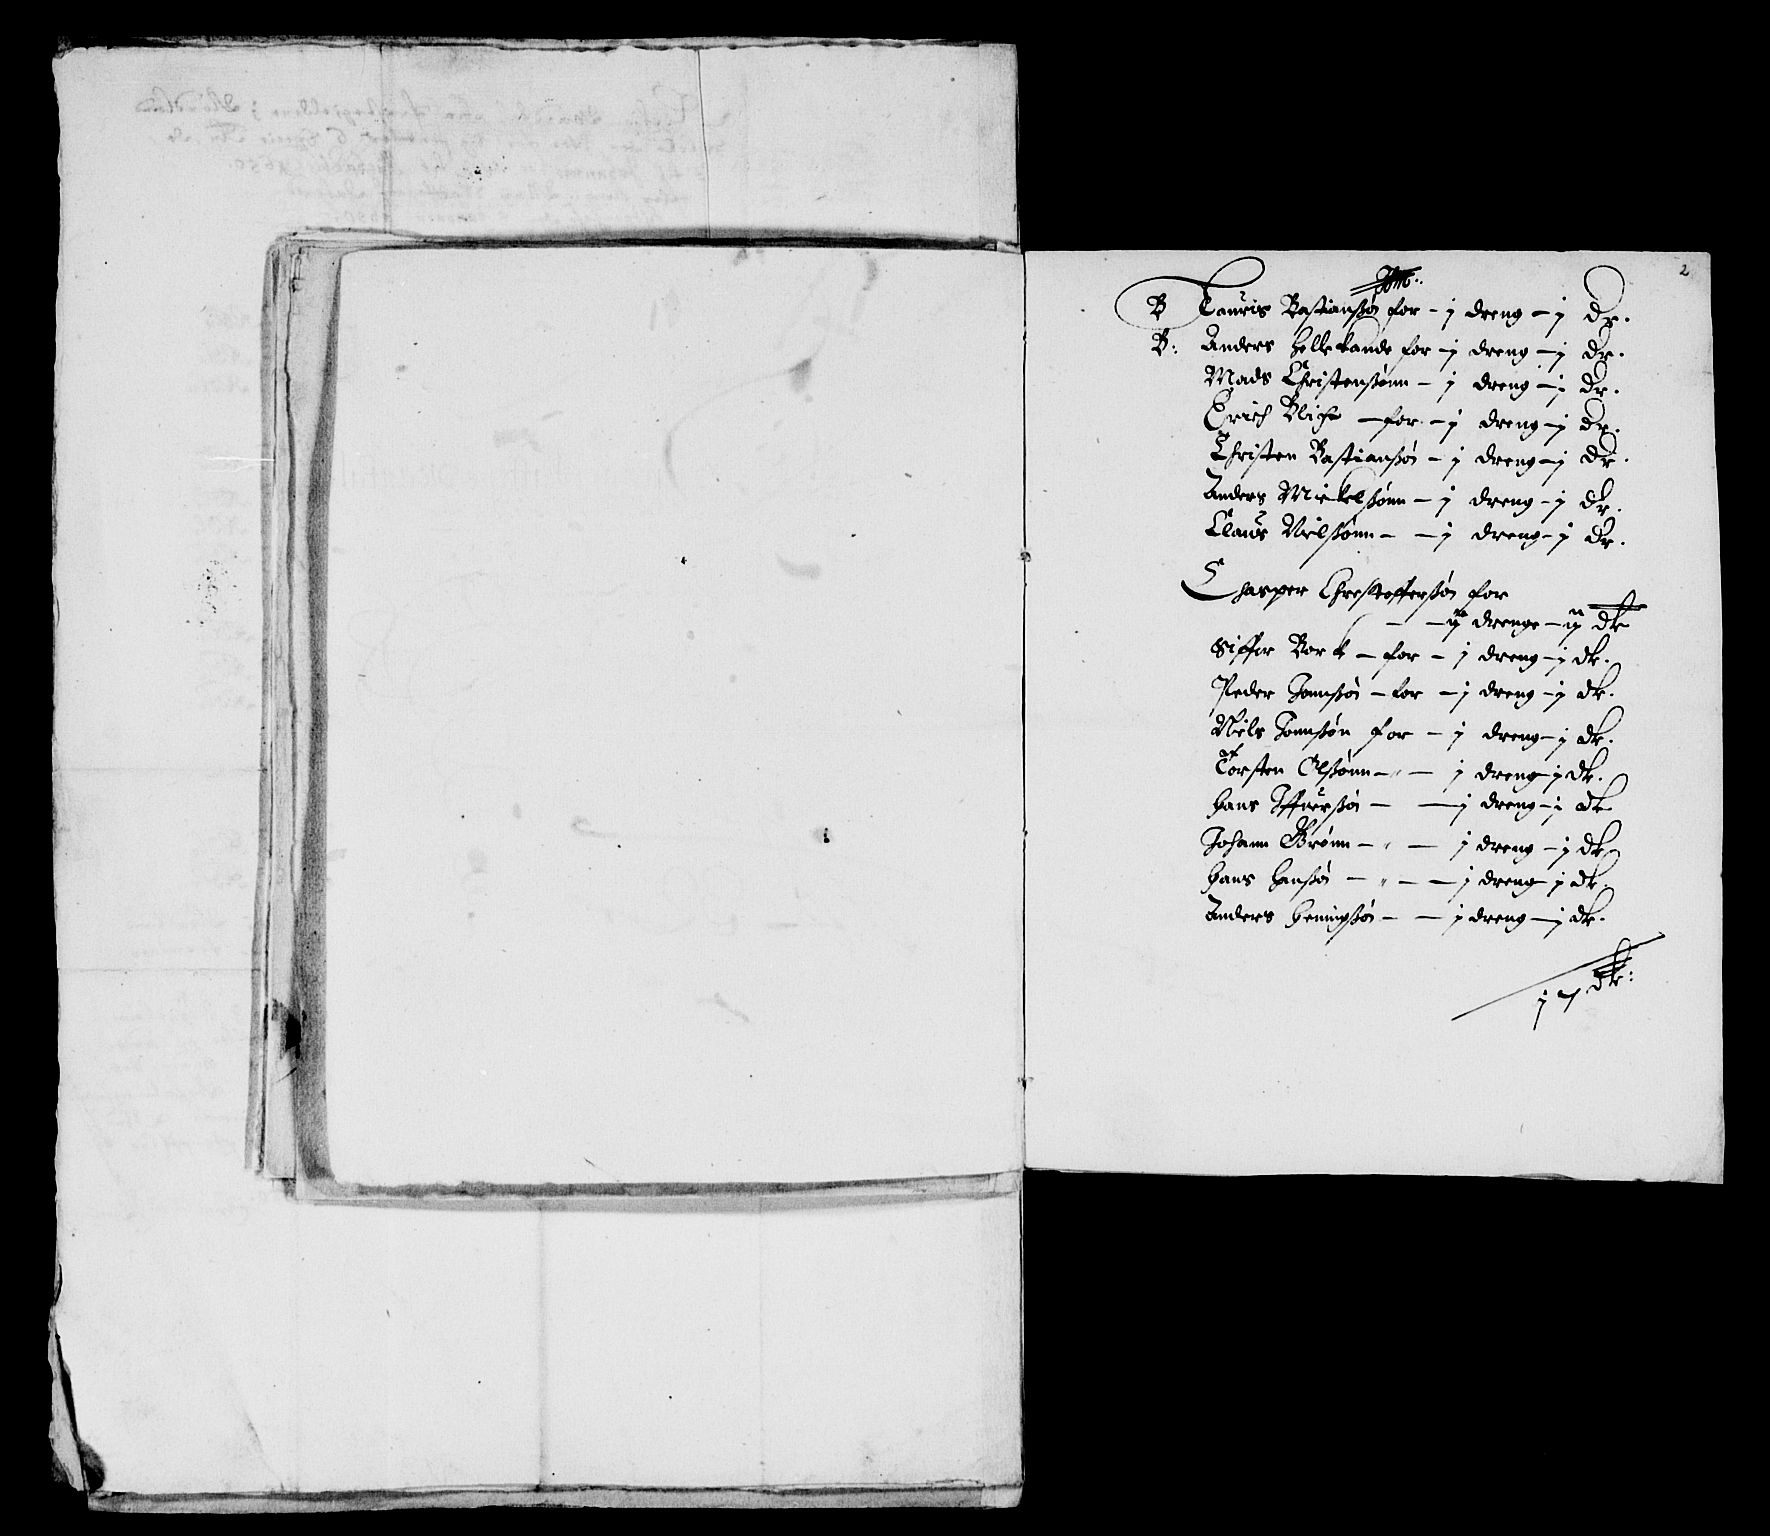 2
B Lauris Bastianßøn for – j dreng – j dr.
B: Anders Hellekande for – j dreng – j dr.
Mads Christensønn – j dreng – j dr.
Erich Blich – for – j dreng – j dr.
Christen Bastianßøn – j dreng – j dr.
Anders Mickelßønn – j dreng – j dr.
Claus Nielßønn – – j dreng – j dr.
Chasper Christofferßøn for
– – ij drenge – ij dr
Siffer Bork – for – j dreng – j dr.
Peder Jonnßøn – for – j dreng – j dr.
Niels Jonnßøn for – j dreng – j dr.
Torsten Olßønn – – j dreng j dr.
Hans Iffuerßøn – – j dreng – j dr
Johann Brønn – – j dreng – j dr
Hans Hanßøn – – – j dreng j dr.
Anders Heningßøn – – j dreng – j dr.
17 dr: